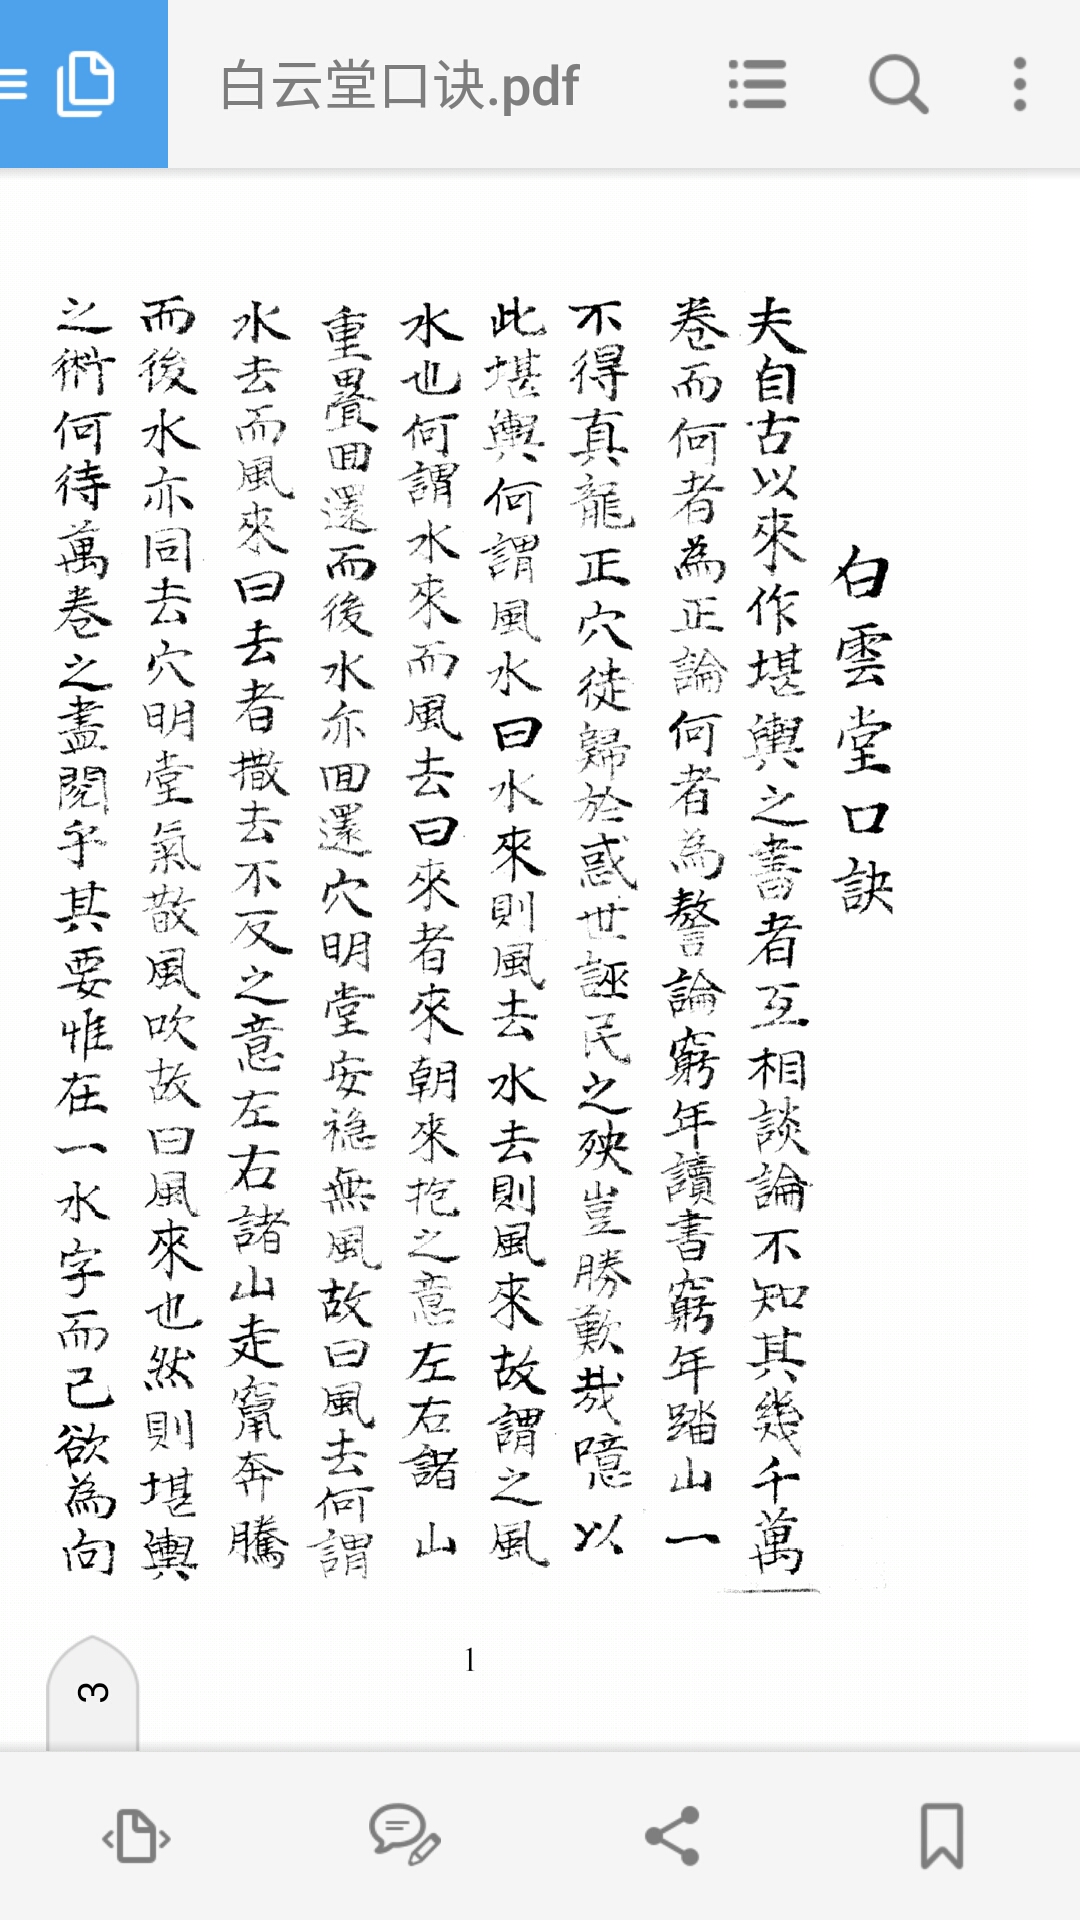 白云堂口诀.pdf
白雲堂口訣
夫自古以來作堪輿之書者互相談論不知其幾千萬
卷而何者為正論何者為謷論窮年讀書窮年踏山一
不得真龍正穴徒歸於惑世誣民之殃豈勝歎哉噫以
此堪輿何謂風水曰水來則風去水去則風來故謂之風
水也何謂水來而風去曰來者來朝來抱之意左右諸山
重疊回還而後水亦回還穴明堂安穩無風故曰風去何謂
水去而風來曰去者撒去不反之意左右諸山走竄奔騰
而後水亦同去穴明堂氣散風吹故曰風來也然則堪輿
之術何待萬卷之盡閱乎其要惟在一水字而已欲為向
1
3